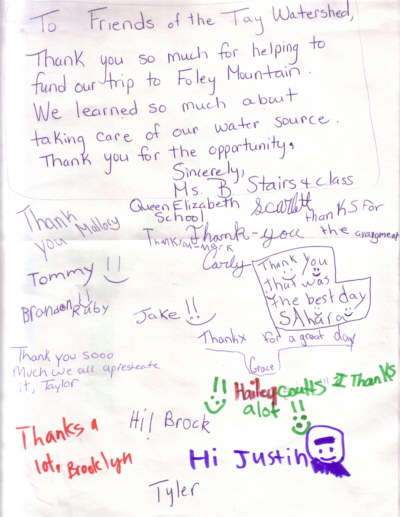 To Friends of the Tay Watershed,
Thank you so much for helping to
fund our trip to Foley Mountain.
We learned so much about
taking care of our water source.
Thank you for the opportunity.
Sincerely,
Ms. B. Stairs & class
Queen Elizabeth
School
Scarlett
thanks for
the arangment
Thank
you Mallory
Thankyou-Mark
Thank-you
Carly
Tommy
Thank you
that was
the best day
SAhara
Brandon
Ruby
Jake
Thanhx for a great day
Grace
Thank you sooo
Much we all apresheate
it, Taylor
Hailey Coutts II Thanks
alot
Thanks a
lot, Brooklyn
Hi! Brock
Hi Justin
Tyler